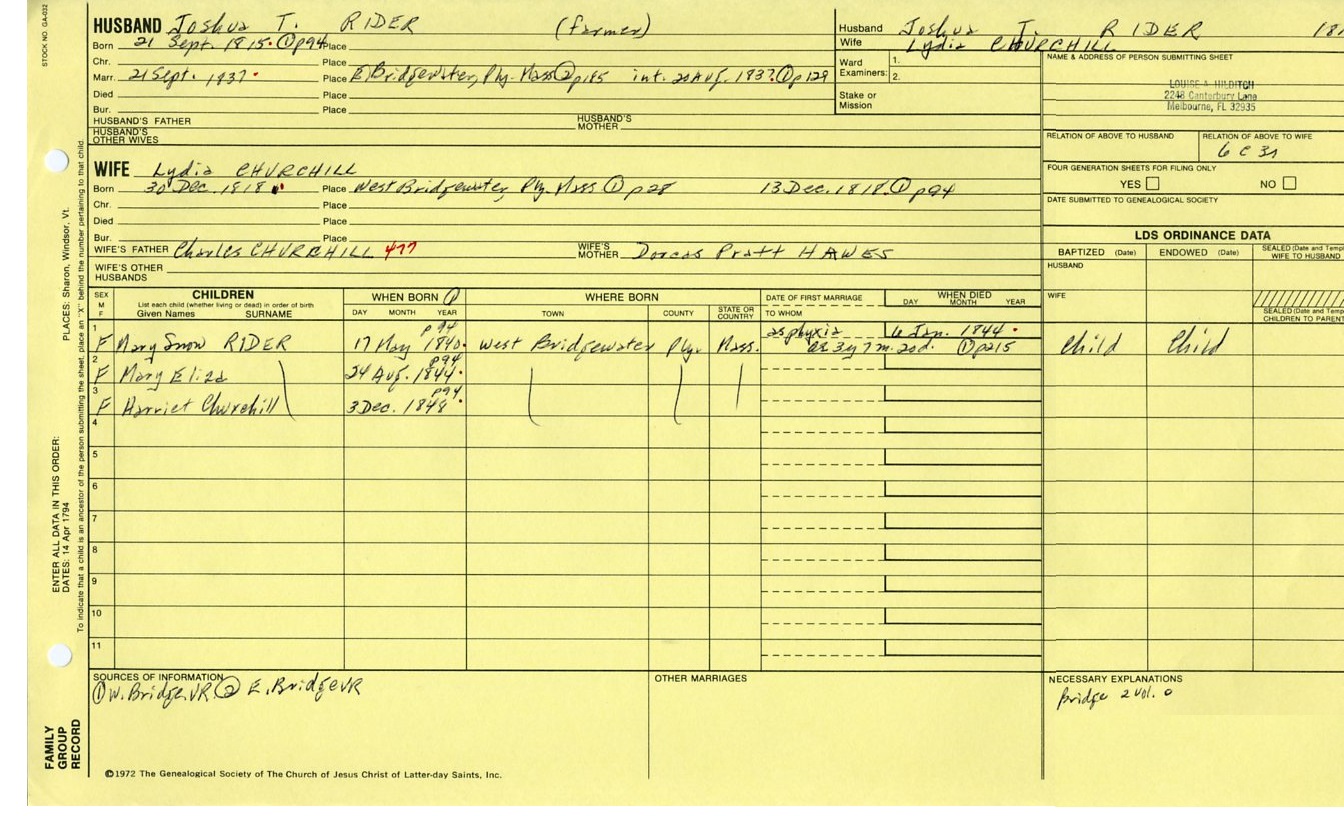 STOCK NO. GA-032
HUSBAND Joshua T. RIDER (farmer)
Born 21 Sept. 1815. ① p94 Place
Chr. Place
Marr. 21 Sept. 1837. Place E Bridgewater, Ply. Mass ② p185 int. 20 Aug. 1837. ① p129
Died Place
Bur. Place
HUSBAND'S FATHER HUSBAND'S MOTHER
HUSBAND'S OTHER WIVES
Husband Joshua T. RIDER
Wife Lydia CHURCHILL
Ward Examiners: 1.
2.
Stake or Mission
NAME & ADDRESS OF PERSON SUBMITTING SHEET
LOUISE A. HILDITCH
2248 Canterbury Lane
Melbourne, FL 32935
RELATION OF ABOVE TO HUSBAND RELATION OF ABOVE TO WIFE
6 C 3r
FOUR GENERATION SHEETS FOR FILING ONLY
YES NO
DATE SUBMITTED TO GENEALOGICAL SOCIETY
WIFE Lydia CHURCHILL
Born 30 Dec. 1818 Place West Bridgewater, Ply. Mass ① p28 13 Dec. 1818. ① p94
Chr. Place
Died Place
Bur. Place
WIFE'S FATHER Charles CHURCHILL 477 WIFE'S MOTHER Dorcas Pratt HAWES
WIFE'S OTHER HUSBANDS
LDS ORDINANCE DATA
BAPTIZED (Date) ENDOWED (Date) SEALED (Date and Temp
WIFE TO HUSBAND
HUSBAND
WIFE
SEALED (Date and Temp
CHILDREN TO PARENT
SEX M F CHILDREN WHEN BORN ① WHERE BORN DATE OF FIRST MARRIAGE WHEN DIED
List each child (whether living or dead) in order of birth
Given Names SURNAME DAY MONTH YEAR TOWN COUNTY STATE OR COUNTRY TO WHOM DAY MONTH YEAR
1 p94 asphyxia 6 Jan. 1844.
F Mary Snow RIDER 17 May 1840. West Bridgewater Ply. Mass. ae 3y 7m. 20d. ① p215 Child Child
2 p94
F Mary Eliza 24 Aug. 1844.
3 p94
F Harriet Churchill 3 Dec. 1848.
4
5
6
7
8
9
10
11
SOURCES OF INFORMATION
① W. Bridge. VR. ② E. Bridge VR
OTHER MARRIAGES
NECESSARY EXPLANATIONS
Bridge 2 vol. 0
©1972 The Genealogical Society of The Church of Jesus Christ of Latter-day Saints, Inc.
FAMILY GROUP RECORD
ENTER ALL DATA IN THIS ORDER:
DATES: 14 Apr 1794 PLACES: Sharon, Windsor, Vt.
To indicate that a child is an ancestor of the person submitting the sheet, place an "X" behind the number pertaining to that child.